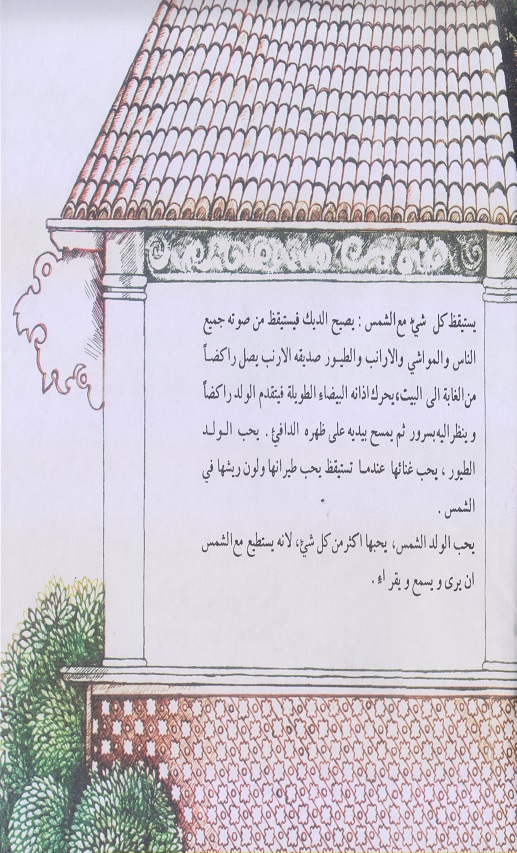 يستيقظ كل شيء مع الشمس : يصيح الديك فيستيقظ من صوته جميع
الناس والمواشي والارانب والطيور صديقه الارنب يصل راكضاً
من الغابة الى البيت، يحرك اذانه البيضاء الطويلة فيتقدم الولد راكضاً
و ينظر اليه بسرور ثم يمسح بيديه على ظهره الدافئ . يحب الولد
الطيور ، يحب غنائها عندما تستيقظ يحب طيرانها ولون ريشها في
الشمس .
يحب الولد الشمس، يحبها اكثر من كل شيء، لانه يستطيع مع الشمس
ان يرى و يسمع و يقراء .